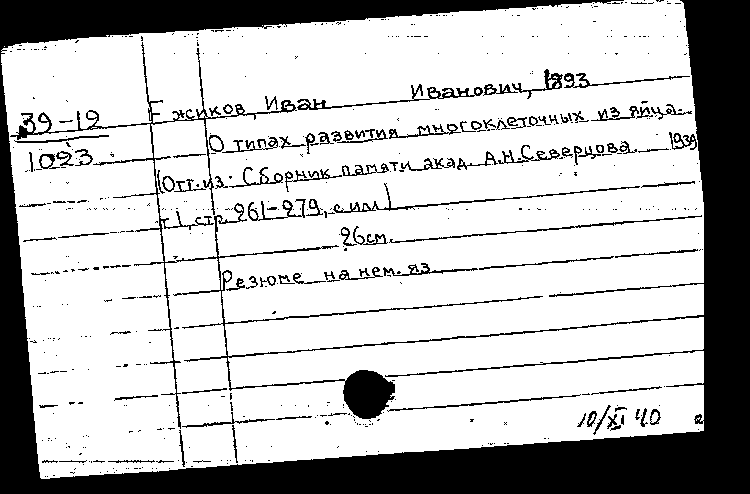 39-19
1093
Ежиков, Иван Иванович, 1893
О типах развития многоклеточных из яйца.
(Отт. из: Сборник памяти акад. А.Н. Северцова. 1939
т 1, стр 261-279, с илл)
26 см.
Резюме на нем. яз.
10/XI 40